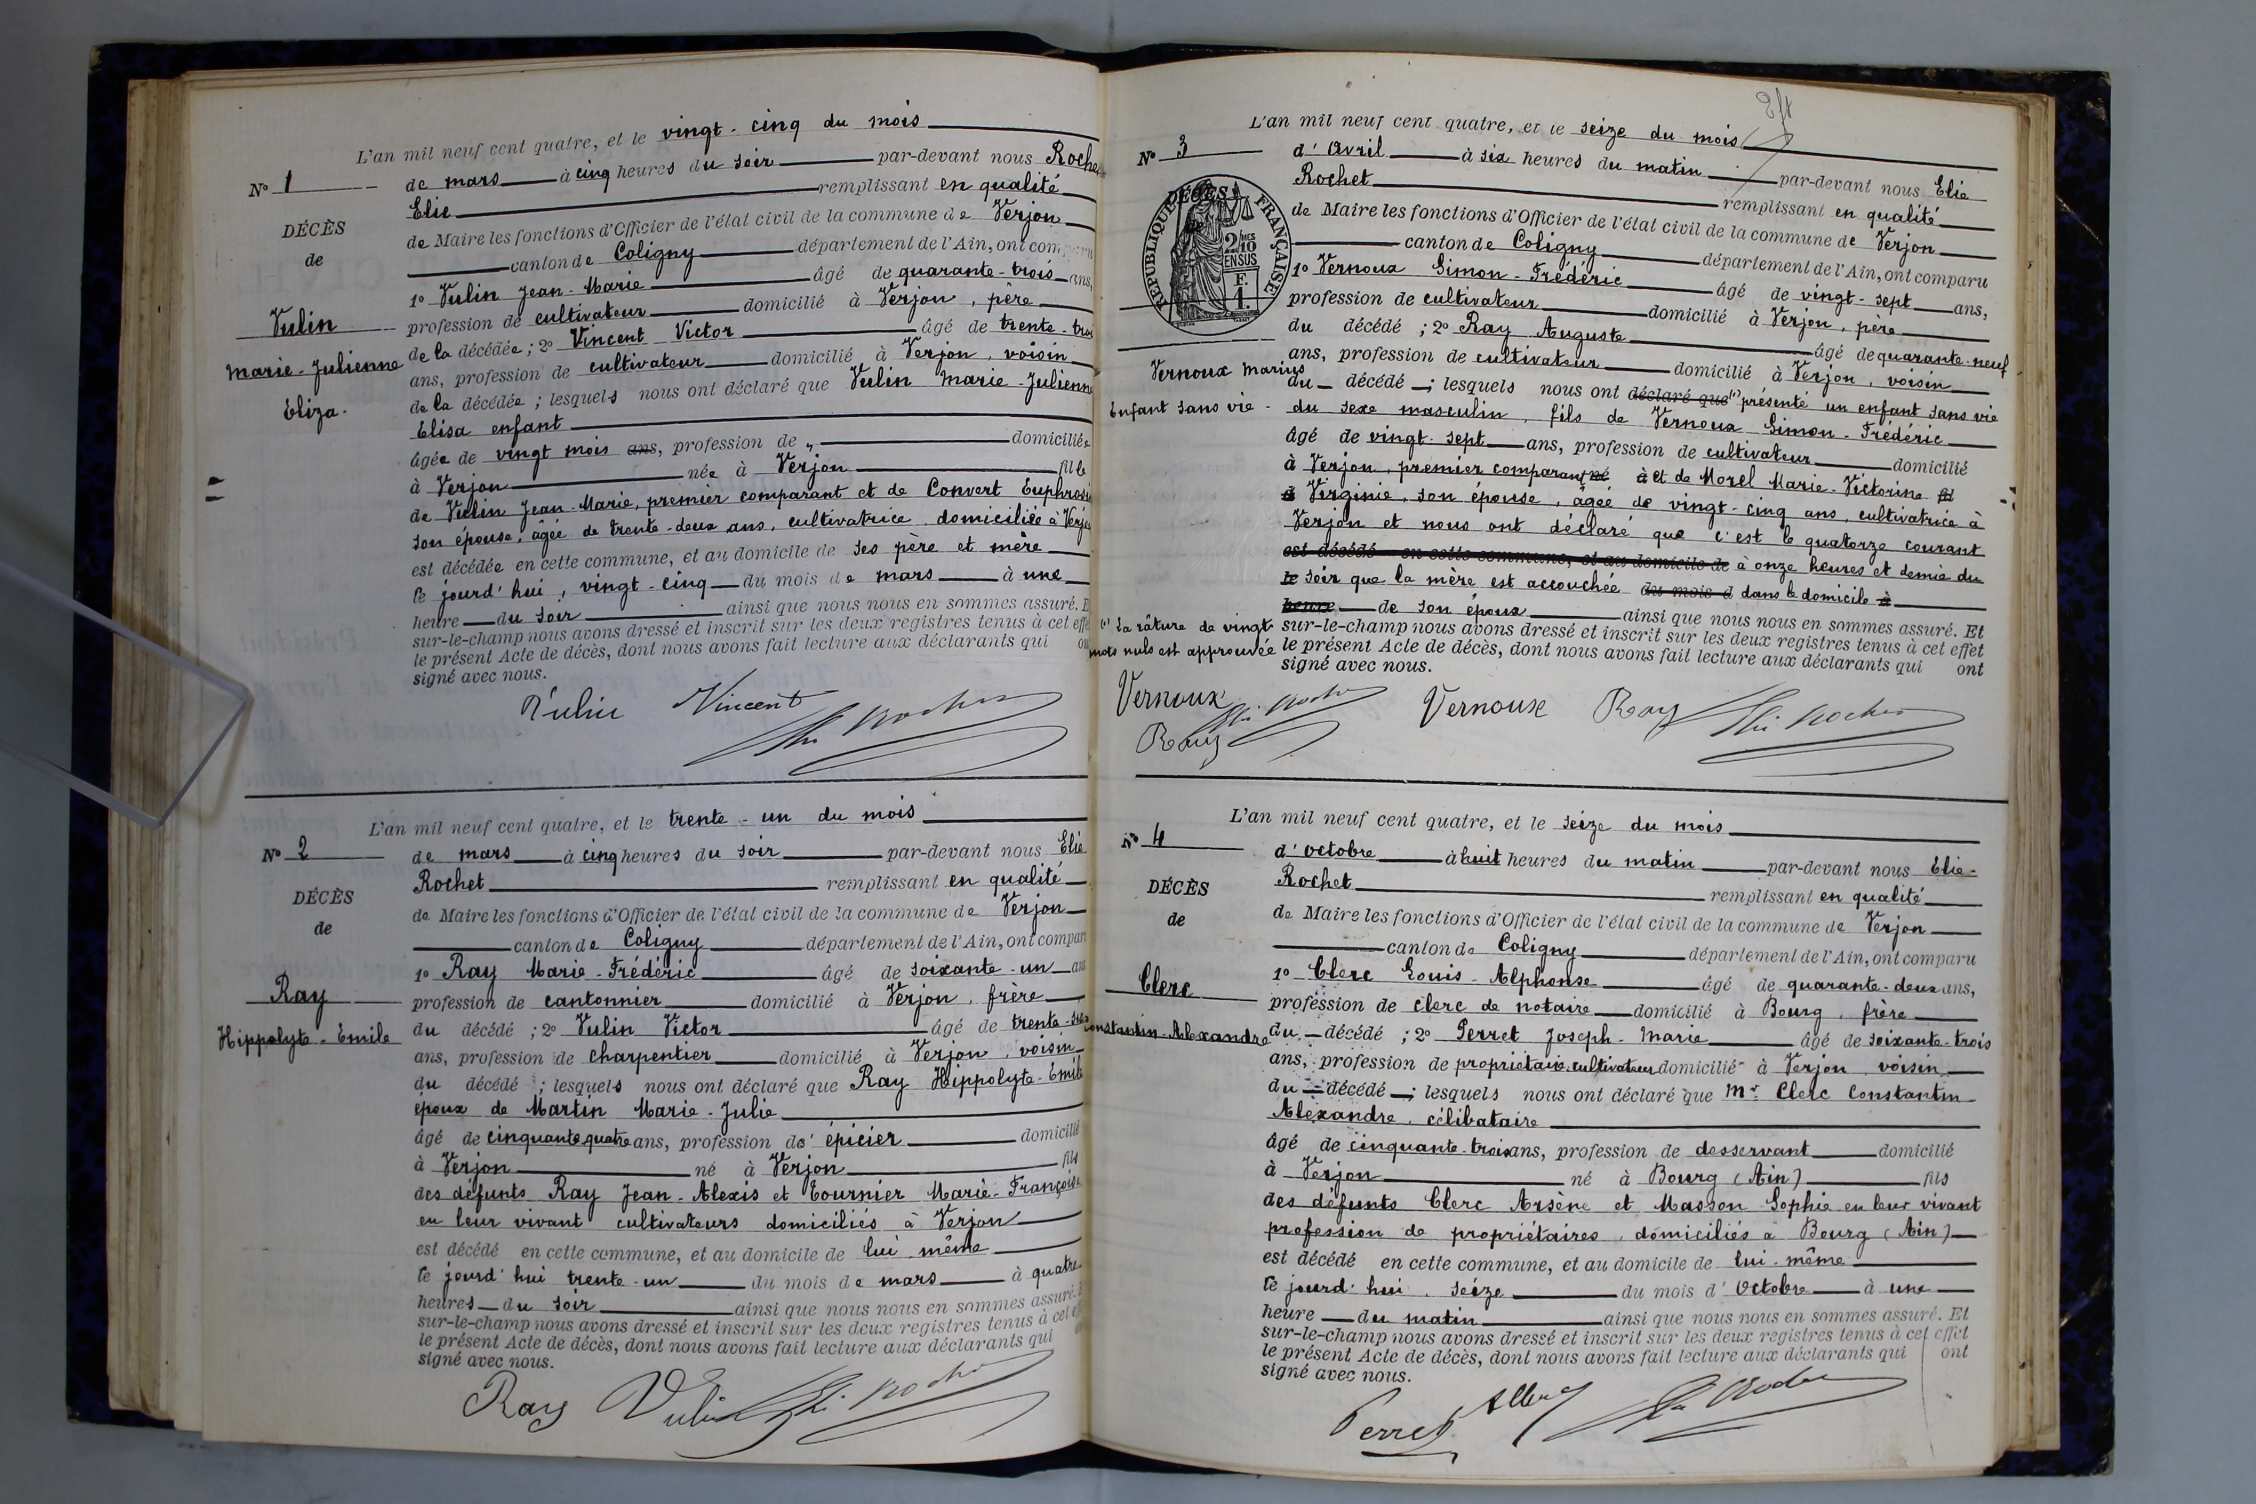 L'an mil neuf cent quatre, et le vingt-cinq du mois
N° 1
de mars à cinq heures du soir par-devant nous Roche
Elie remplissant en qualité
DÉCÈS
de Maire les fonctions d'Officier de l'état civil de la commune de Verjon
de
canton de Coligny département de l'Ain, ont comparu
1° Vulin Jean-Marie âgé de quarante-trois ans,
Vulin
profession de cultivateur domicilié à Verjon, père
de la décédée; 2° Vincent Victor âgé de trente-troi
Marie-Julienne
ans, profession de cultivateur domicilié à Verjon, voisin
de la décédée; lesquels nous ont déclaré que Vulin Marie-Julienne
Eliza.
Elisa enfant
âgée de vingt mois ans, profession de „ domiciliée
à Verjon née à Verjon fille
de Vulin Jean-Marie, premier comparant et de Convert Euphrosi
son épouse, âgée de trente-deux ans, cultivatrice domiciliée à Verjo
est décédée en cette commune, et au domicile de ses père et mère
le jourd'hui, vingt-cinq du mois de mars à une
heure du soir ainsi que nous nous en sommes assuré. E
sur-le-champ nous avons dressé et inscrit sur les deux registres tenus à cet effe
le présent Acte de décès, dont nous avons fait lecture aux déclarants qui on
signé avec nous.
Vulin Vincent Elie Rochet
L'an mil neuf cent quatre, et le trente-un du mois
N° 2
de mars à cinq heures du soir par-devant nous Elie
Rochet remplissant en qualité
DÉCÈS
de Maire les fonctions d'Officier de l'état civil de la commune de Verjon
de
canton de Coligny département de l'Ain, ont compar
1° Ray Marie-Frédéric âgé de soixante-un ans
Ray
profession de cantonnier domicilié à Verjon, frère
du décédé; 2° Vulin Victor âgé de trente-
Hippolyte-Emile
ans, profession de charpentier domicilié à Verjon, voisin
du décédé; lesquels nous ont déclaré que Ray Hippolyte-Emile
époux de Martin Marie-Julie
âgé de cinquante quatre ans, profession d' épicier domicilié
à Verjon né à Verjon fils
des défunts Ray Jean-Alexis et Tournier Marie-Françoise
en leur vivant cultivateurs domiciliés à Verjon
est décédé en cette commune, et au domicile de lui même
le jourd'hui trente-un du mois de mars à quatre
heures du soir ainsi que nous nous en sommes assuré. E
sur-le-champ nous avons dressé et inscrit sur les deux registres tenus à cet eff
le présent Acte de décès, dont nous avons fait lecture aux déclarants qui
signé avec nous.
Ray Vulin Elie Rochet
L'an mil neuf cent quatre, et le seize du mois
N° 3
d'Avril à six heures du matin par-devant nous Elie
Rochet remplissant en qualité
DÉCÈS
RÉPUBLIQUE FRANÇAISE
2/10 MES EN SUS
F. 1.
de Maire les fonctions d'Officier de l'état civil de la commune de Verjon
canton de Coligny département de l'Ain, ont comparu
1° Vernoux Simon-Frédéric âgé de vingt-sept ans,
profession de cultivateur domicilié à Verjon, père
du décédé; 2° Ray Auguste âgé de quarante-neuf
ans, profession de cultivateur domicilié à Verjon, voisin
Vernoux Marius
du décédé; lesquels nous ont déclaré que (1) présenté un enfant sans vie
Enfant sans vie -
du sexe masculin, fils de Vernoux Simon-Frédéric
âgé de vingt-sept ans, profession de cultivateur domicilié
à Verjon, premier comparant né à et de Morel Marie-Victorine fil
d Virginie, son épouse, âgée de vingt-cinq ans, cultivatrice à
Verjon et nous ont déclaré que c'est le quatorze courant
est décédé en cette commune, et au domicile de à onze heures et demie du
le soir que la mère est accouchée du mois d dans le domicile à
heure de son époux ainsi que nous nous en sommes assuré. Et
(1) La râture de vingt
sur-le-champ nous avons dressé et inscrit sur les deux registres tenus à cet effet
mots nuls est approuvée
le présent Acte de décès, dont nous avons fait lecture aux déclarants qui ont
signé avec nous.
Vernoux Elie Rochet
Ray
Vernoux Ray Elie Rochet
L'an mil neuf cent quatre, et le seize du mois
N° 4
d'octobre à huit heures du matin par-devant nous Elie-
Rochet remplissant en qualité
DÉCÈS
de Maire les fonctions d'Officier de l'état civil de la commune de Verjon
de
canton de Coligny département de l'Ain, ont comparu
1° Clerc Louis-Alphonse âgé de quarante-deux ans,
Clerc
profession de clerc de notaire domicilié à Bourg, frère
Constantin-Alexandre
du décédé; 2° Perret Joseph-Marie âgé de soixante-trois
ans, profession de propriétaire cultivateur domicilié à Verjon, voisin
du décédé; lesquels nous ont déclaré que Mr Clerc Constantin
Alexandre, célibataire
âgé de cinquante-trois ans, profession de desservant domicilié
à Verjon né à Bourg (Ain) fils
des défunts Clerc Arsène et Masson Sophie en leur vivant
profession de propriétaires, domiciliés à Bourg (Ain)
est décédé en cette commune, et au domicile de lui-même
le jourd'hui, seize du mois d'Octobre à une
heure du matin ainsi que nous nous en sommes assuré. Et
sur-le-champ nous avons dressé et inscrit sur les deux registres tenus à cet effet
le présent Acte de décès, dont nous avons fait lecture aux déclarants qui ont
signé avec nous.
Perret AClerc Elie Rochet